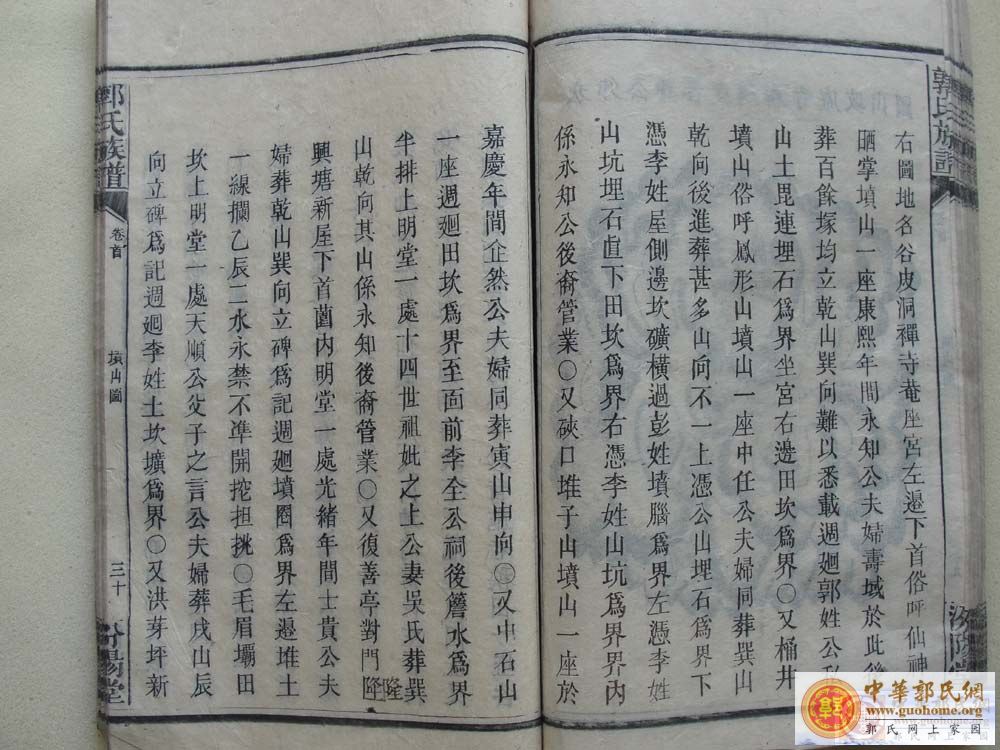 郭氏族譜
右圖地名谷皮洞禪寺菴座宮左邉下首俗呼仙神
晒掌墳山一座康熙年間永知公夫婦壽域於此後
葬百餘塚均立乾山巽向難以悉載週廻郭姓公私
山土毘連埋石爲界坐宮右邊田坎爲界〇又桶井
墳山俗呼鳳形山墳山一座中任公夫婦同葬巽山
乾向後進葬甚多山向不一上憑公山埋石爲界下
憑李姓屋側邊坎礦橫過彭姓墳腦爲界左憑李姓
山坑埋石直下田坎爲界右憑李姓山坑爲界界內
係永知公後裔管業〇又硤口堆子山墳山一座於
嘉慶年間企然公夫婦同葬寅山申向〇又中石山
一座週廻田坎爲界至面前李全公祠後簷水爲界
半排上明堂一處十四世祖妣之上公妻吳氏葬巽
山乾向其山係永知後裔管業〇又復善亭對門隆
興塘新屋下首薗內明堂一處光緒年間士貴公夫
婦葬乾山巽向立碑爲記週廻墳圈爲界左邉堆土
一線攔乙辰二水永禁不凖開挖担挑〇毛眉壩田
坎上明堂一處天順公父子之言公夫婦葬戌山辰
向立碑爲記週廻李姓土坎壙爲界〇又洪芽坪新
郭氏族譜
卷首
墳山圖
三十
汾陽堂
隆
中華郭氏網
www.guohome.org
郭氏网上家园